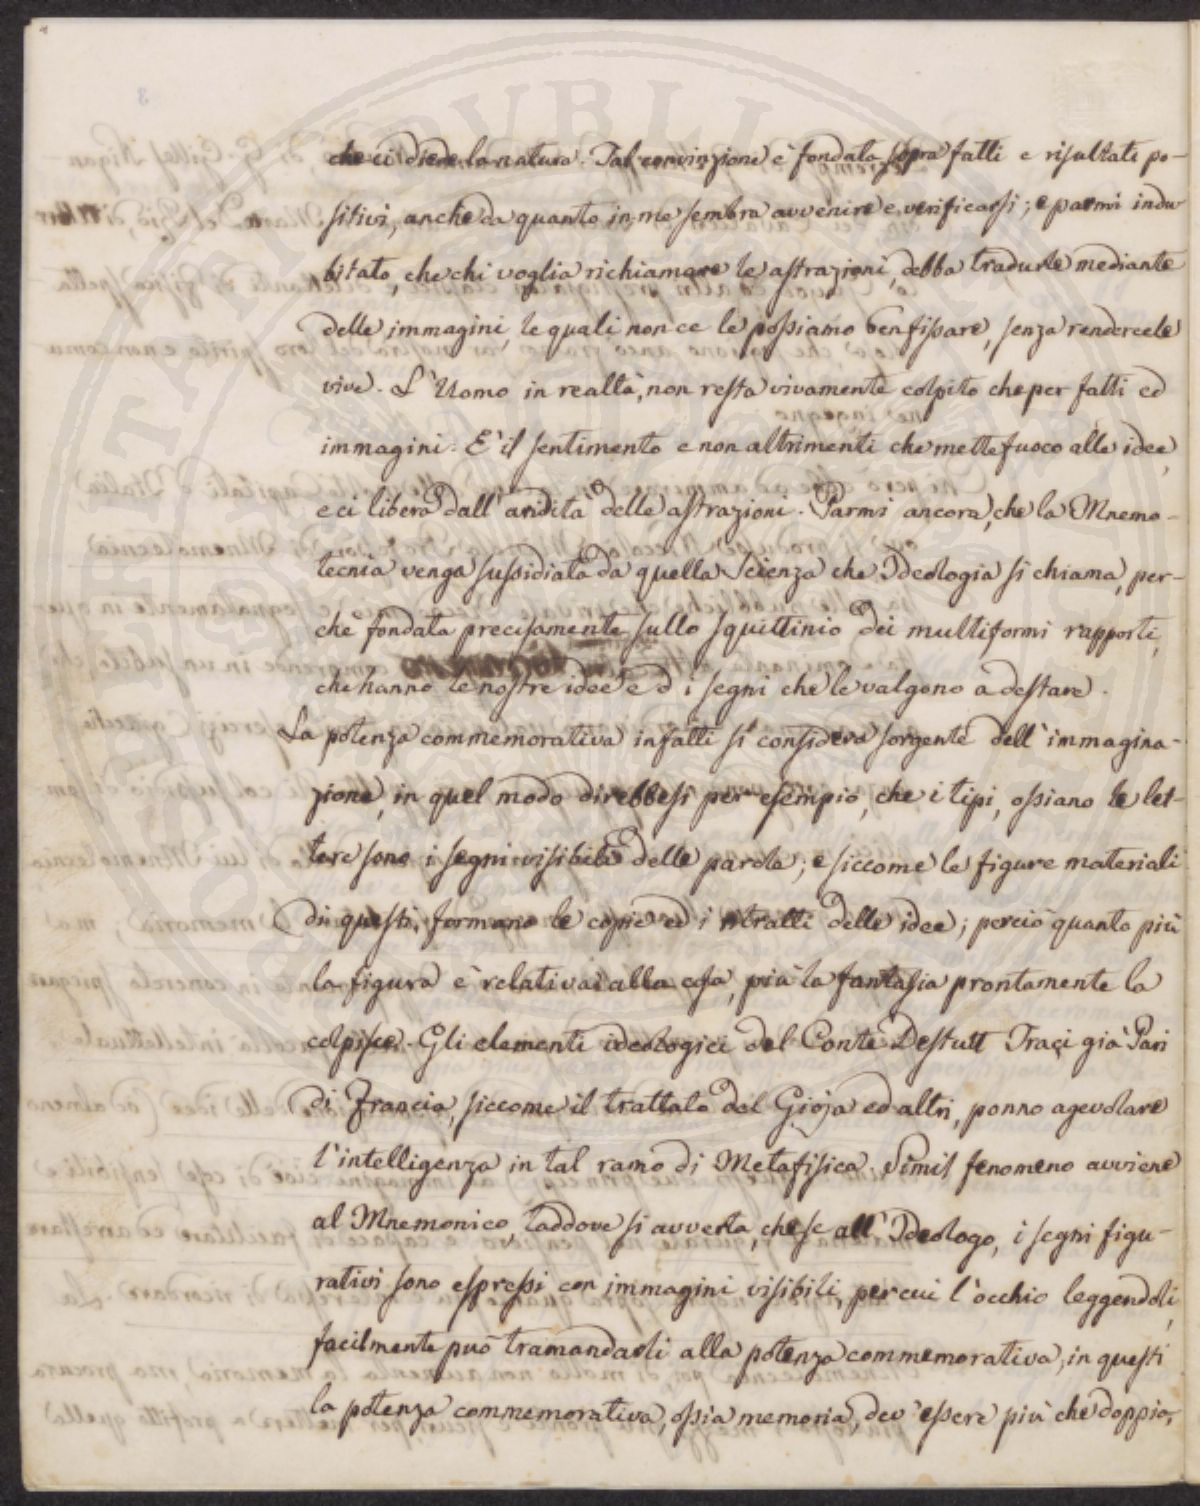 che ci diede la natura. Tal convinzione è fondata sopra fatti e risultati po-
sitivi, anche da quanto in me sembra avvenire e verificarsi; e parmi indu-
bitato, che chi voglia richiamare le astrazioni, debba tradurle mediante
delle immagini, le quali non ce le possiamo ben fissare, senza rendercele
vive. L'Uomo in realtà, non resta vivamente colpito che per fatti ed
immagini. E' il sentimento e non altrimenti che mette fuoco alle idee,
e ci libera dall'aridità delle astrazioni. Parmi ancora, che la Mnemo-
tecnia venga sussidiata da quella Scienza che Ideologia si chiama, per-
chè fondata precisamente sullo squittinio dei multiformi rapporti,
che hanno le nostre idee ed i segni che le valgono a destare.
La potenza commemorativa infatti si considera sorgente dell'immagina-
zione, in quel modo direbbesi per esempio, che i tipi, ossiano le let-
tere sono i segni visibili delle parole; e siccome le figure materiali
di questi, formano le copie ed i ritratti delle idee; perciò quanto più
la figura è relativa alla cosa, più la fantasia prontamente la
colpisce. Gli elementi ideologici del Conte Destutt Traçi già Pari
di Francia, siccome il trattato del Gioja ed altri, ponno agevolare
l'intelligenza in tal ramo di Metafisica. Simil fenomeno avviene
al Mnemonico, laddove si avverta, che se all'Ideologo, i segni figu-
rativi sono espressi con immagini visibili, per cui l'occhio leggendoli,
facilmente può tramandarli alla potenza commemorativa, in questi
la potenza commemorativa, ossia memoria, dev'essere più che doppia,